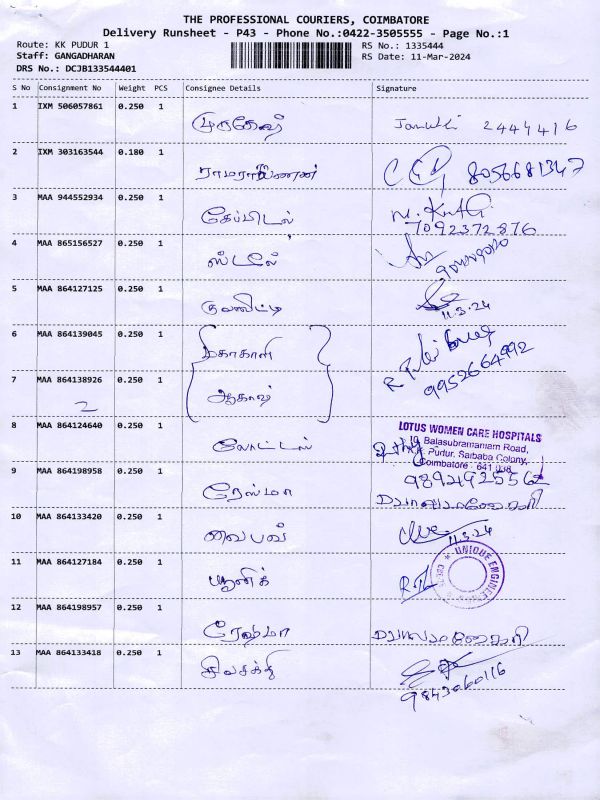 THE PROFESSIONAL COURIERS, COIMBATORE
Delivery Runsheet - P43 - Phone No.:0422-3505555 - Page No.:1
Route: KK PUDUR 1
Staff: GANGADHARAN
DRS No.: DCJB133544401
RS No.: 1335444
RS Date: 11-Mar-2024
S No Consignment No Weight PCS Consignee Details Signature
1 IXM 506057861 0.250 1 முருகேஷ் 2444416
2 IXM 303163544 0.180 1 8056681347
3 MAA 944552934 0.250 1 கேப்பிடல்
7092372876
4 MAA 865156527 0.250 1 ஸ்டீல்
5 MAA 864127125 0.250 1 11.3.24
6 MAA 864139045 0.250 1 மகாகாளி
9952664992
7 MAA 864138926 0.250 1 ஆகாஷ்
2
LOTUS WOMEN CARE HOSPITALS
8 MAA 864124640 0.250 1 லோட்டஸ் Balasubramaniam Road,
Pudur, Saibaba Colony,
Coimbatore - 641 038
9 MAA 864198958 0.250 1 ரேஸ்மா 98924925562
10 MAA 864133420 0.250 1 வைபவ் 11.3.24
11 MAA 864127184 0.250 1 யூனிக் UNIQUE ENGINEERS
12 MAA 864198957 0.250 1 ரேஷ்மா
13 MAA 864133418 0.250 1 சிவசக்தி
9843060116